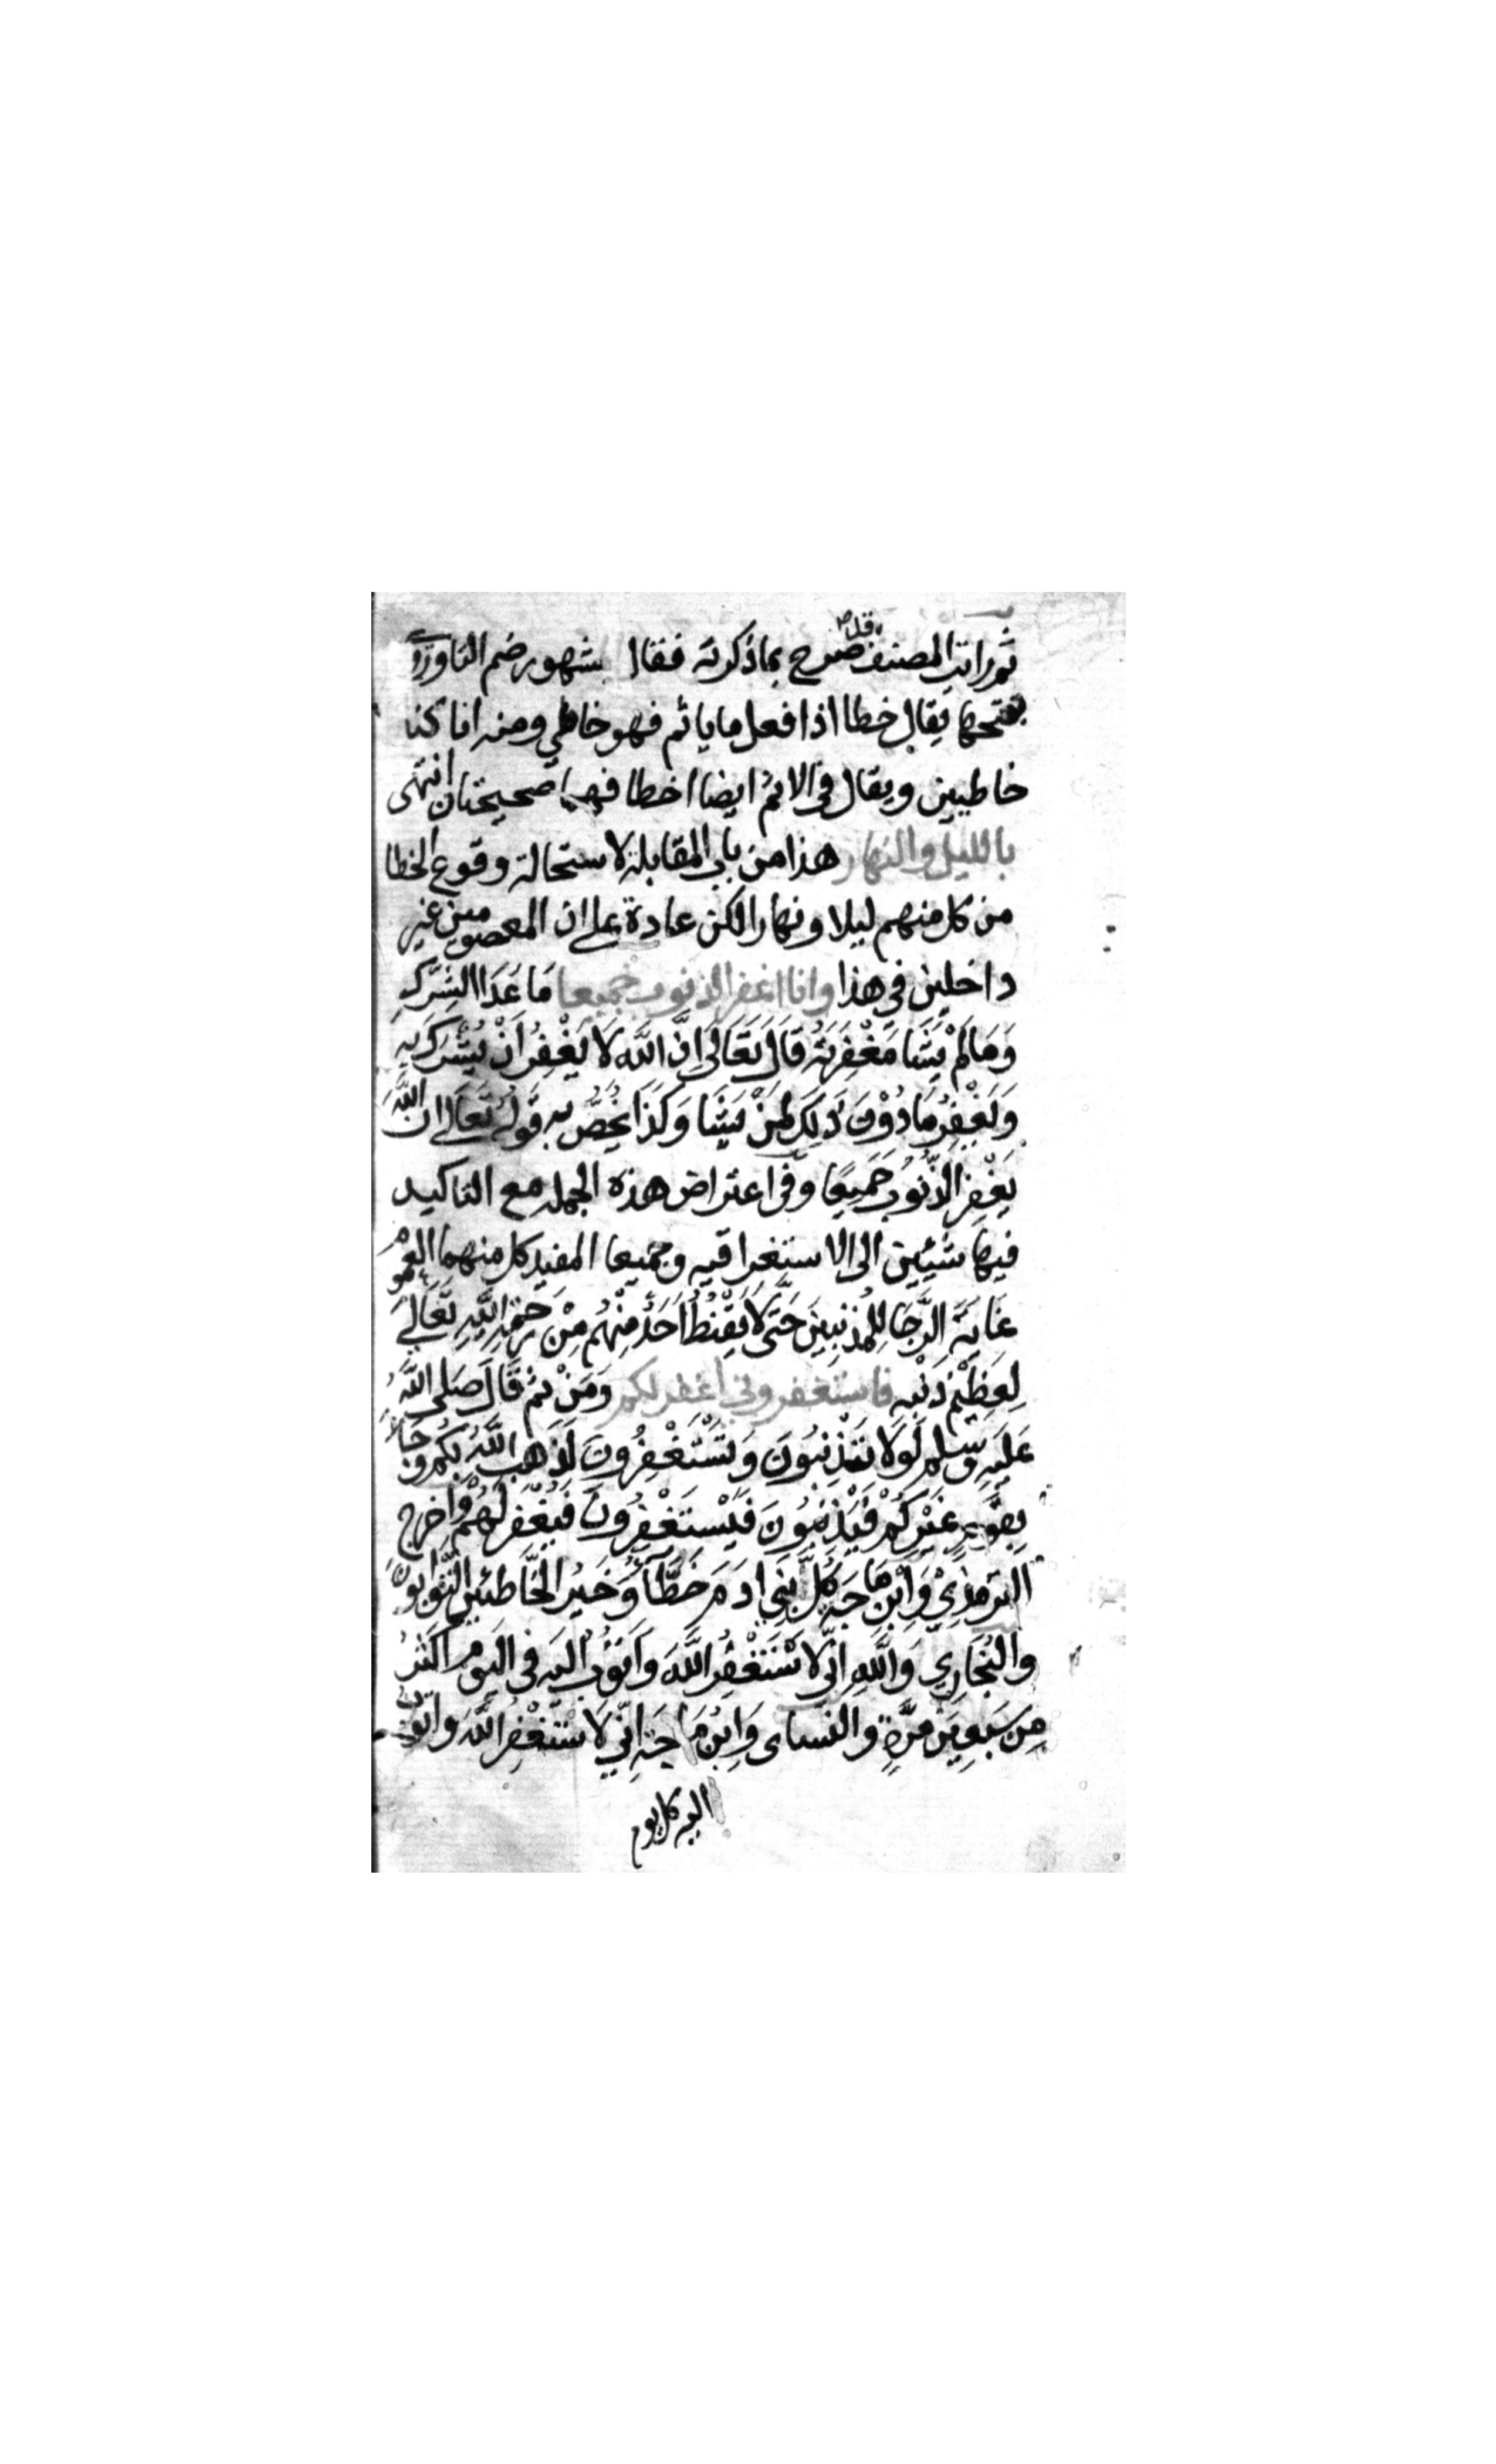 ثم رايت المصنف قد صرح بما ذكرته فقال المشهور ضم التا وروي
بفتحها يقال خطا اذا فعل ما ياثم فهو خاطي ومنه انا كنا
خاطيين ويقال في الاثم ايضا اخطا فهما صحيحتان انتهى
بالليل والنهار هذا من باب المقابلة لاستحالة وقوع الخطا
من كل منهم ليلا ونهارا لكن عادة على ان المعصومين غير
داخلين في هذا وانا اغفر الذنوب جميعا مَا عَدَا الشِرْكِ
وَمَا لَمْ يَشَا مَغْفِرَتَهُ قَالَ تَعَالَى اِنَّ اللَّهَ لَا يَغْفِرُ اَنْ يُشْرَكَ بِهِ
وَيَغْفِرُ مَا دُوْنَ ذَلِكَ لِمَنْ يَشَا وَكَذَا يُخَصُّ بِهِ قَوْلُهُ تَعَالَى اِنَّ اللَّهَ
يَغْفِرُ الذُّنُوْبَ جَمِيعًا وفي اعتراض هذه الجمله مع التاكيد
فيها شيئين ال الاستغراقيه وجميعا المفيد كل منهما العموم
غَايَةَ الرَّجَا لِلْمُذْنِبِينَ حَتَّى لَا يَقْنُطُ اَحَدٌ مِنْهُمْ مِنْ رَحْمَةِ اللَّهِ تَعَالَى
لِعَظِيْمِ ذَنْبِهِ فاستغفروني اغفر لكم وَمِنْ ثَمَّ قَالَ صَلَى اللَّهُ
عَلَيْهِ وَسَلَم لَوْلَا تُذْنِبُوْنَ وَتَسْتَغْفِرُونَ لَذَهَبَ اللَّهُ بِكُمْ وَجَاءَ
بِقَوْمٍ غَيْرِكُمْ فَيُذْنِبُوْنَ فَيَسْتَغْفِرُونَ فَيُغْفَرُ لَهُمْ وَاخرج
الترمذِيْ وَابْنُ مَاجَه كُلُّ بَنِي ادَمَ خَطَّاءٌ وَخَيْرُ الخَّاطئِينَ التَّوَّابُوْنَ
والبُخَارِي وَاللَّهِ اِنِّي لَاسْتَغْفِرُ اللَّهَ وَاَتُوْبُ اليْهِ في اليَومِ اكثَرُ
مِنْ سَبْعِينَ مَرَّةٍ والنسائى وَابْنُ مَاجَه اِنِّي لَاسْتَغْفِرُ اللَّهَ واتوبُ
اليه كل يوم